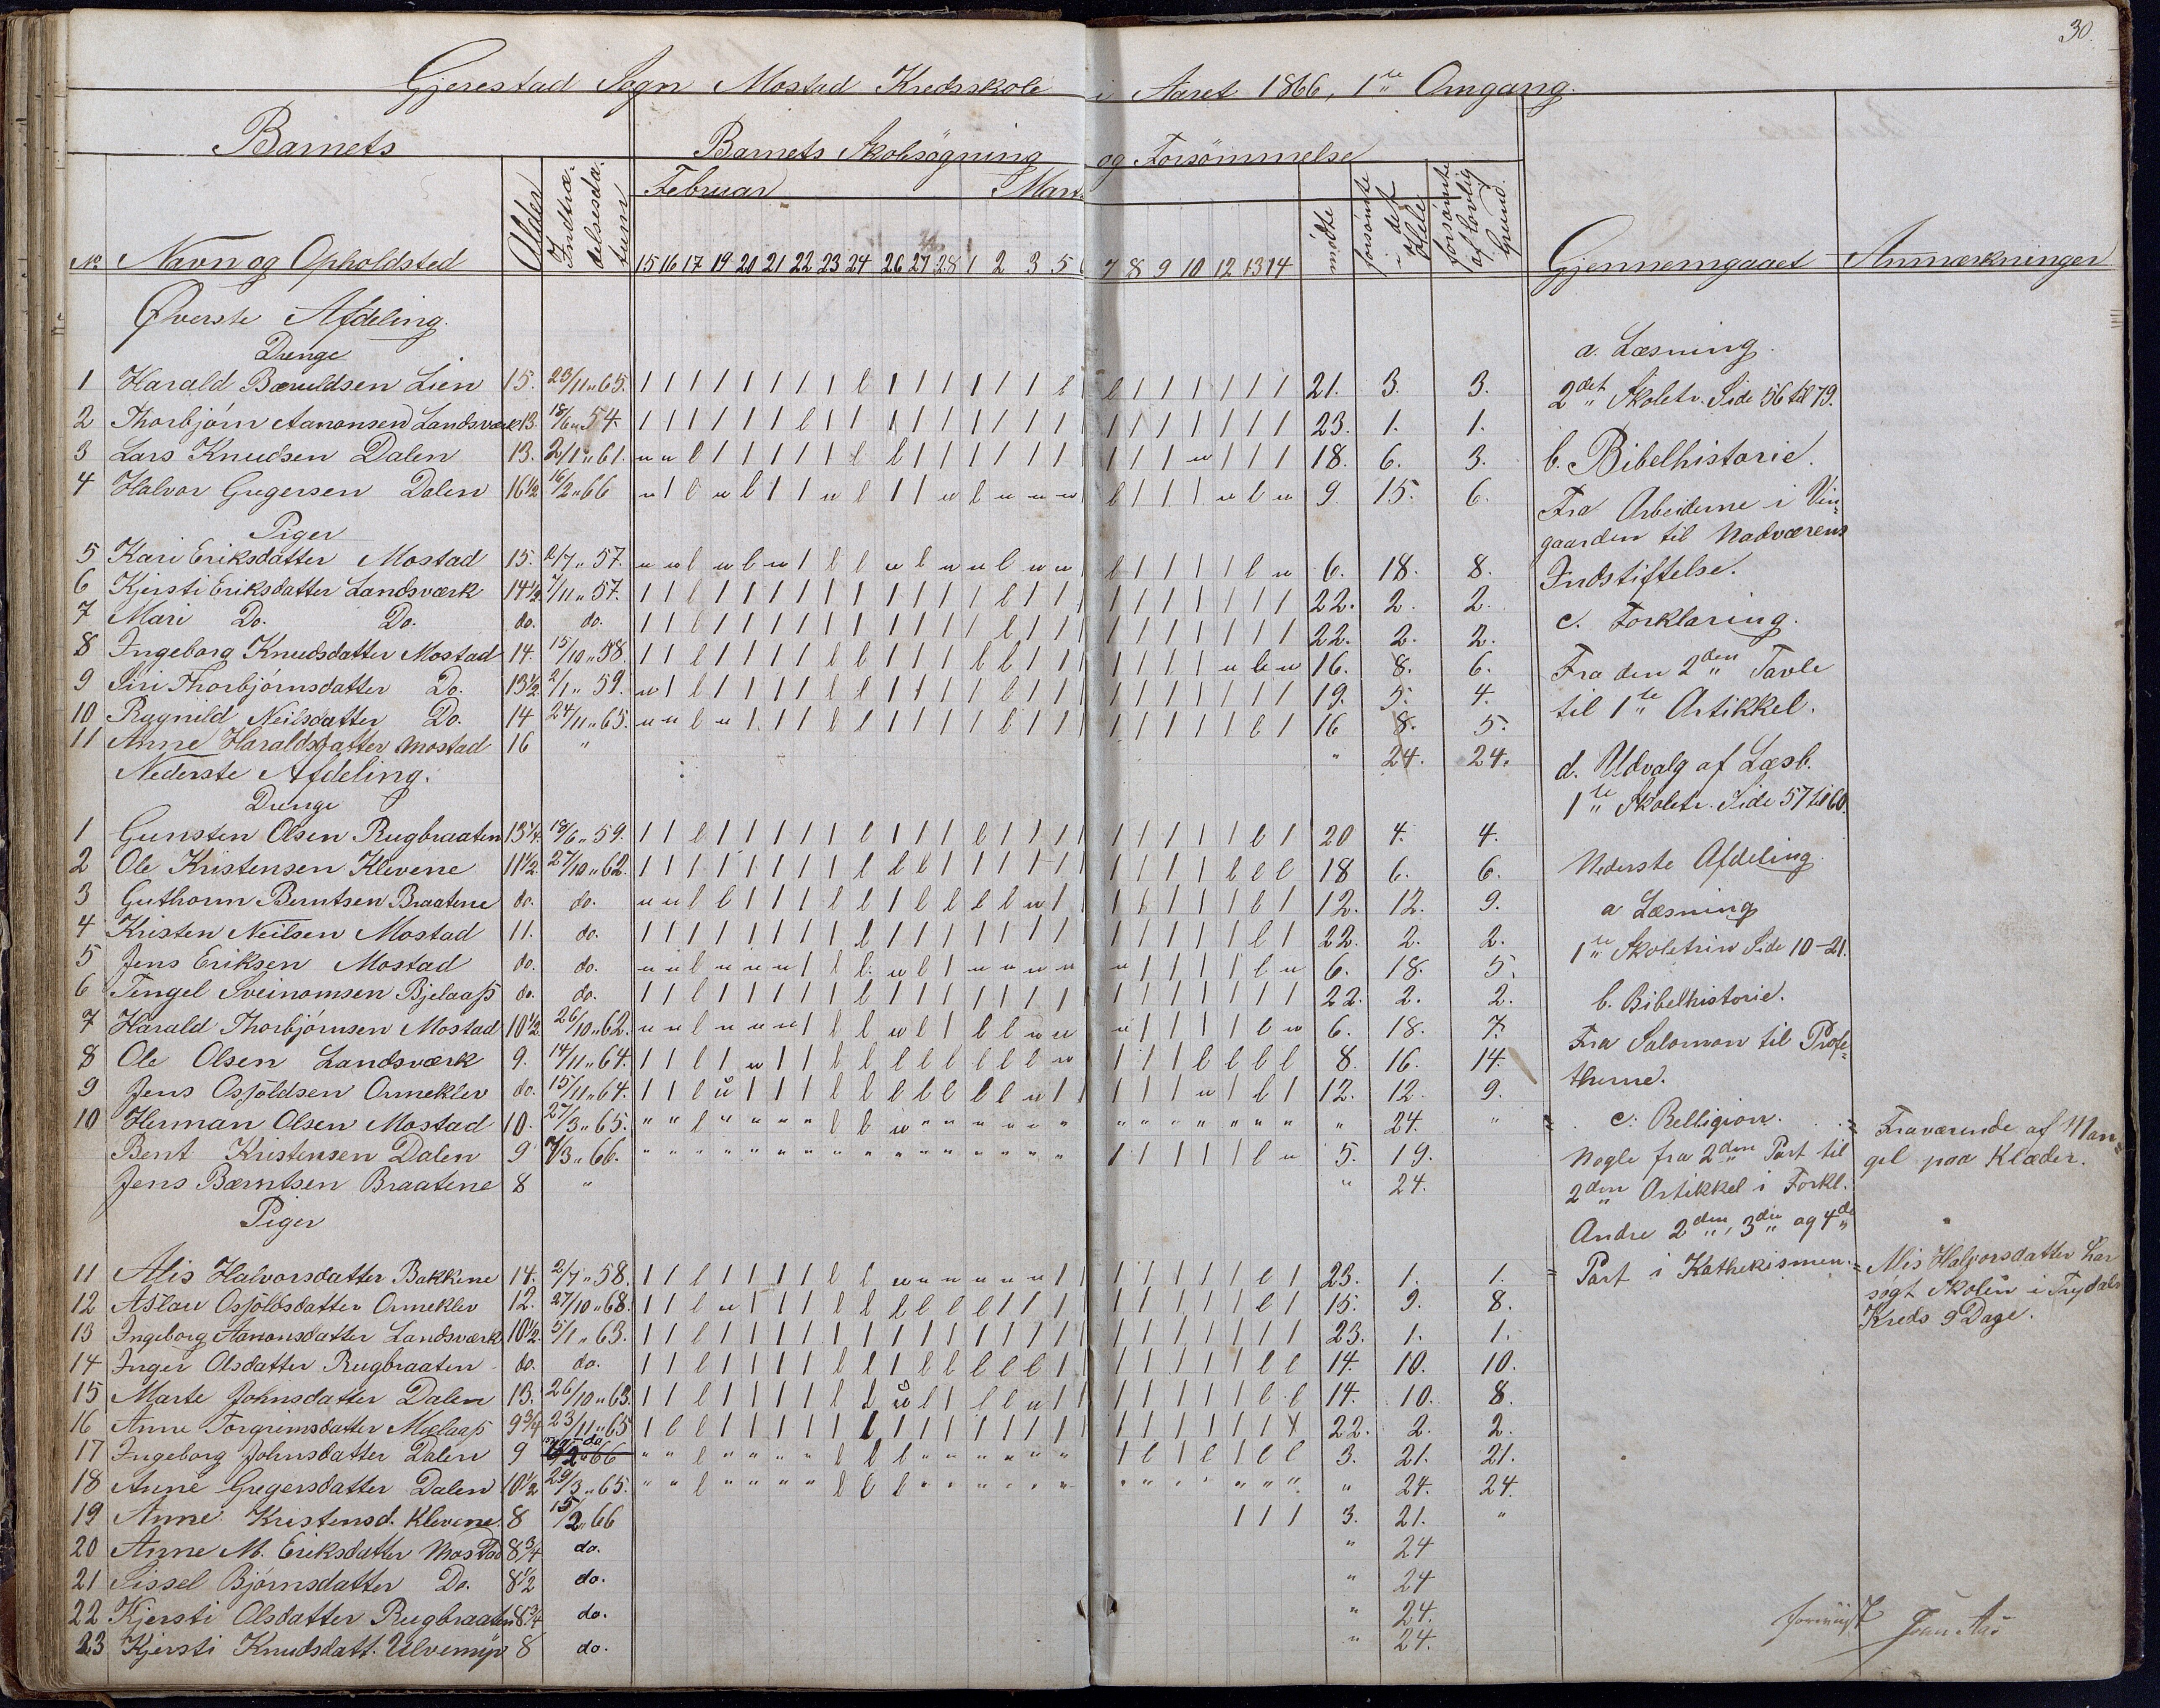 30.
Gjerestad Sogn Mostad Kredsskole i Aaret 1866, 1ste Omgang.
Barnets
Barnets Skolesøgning og Forsømmelse
Februar Marts
No Navn og Opholdsted Alder Indtrædelsesdatum 15 16 17 19 20 21 22 23 24 26 27 28 1 2 3 5 6 7 8 9 10 12 13 14 mødte forsømte i det Hele forsømte af lovlig Grund. Gjennemgaaet Anmærkninger
Øverste Afdeling.
Drenge
1 Harald Bæruldsen Lien 15. 23/11 " 65. 21. 3. 3.
2 Thorbjørn Aanonsen Landsværk 13. 18/6 " 54. 23. 1. 1.
3 Lars Knudsen Dalen 13. 2/1 " 61. 18. 6. 3.
4 Halvor Gregersen Dalen 16 1/2 16/2 " 66 9 15. 6.
Piger
5 Kari Eriksdatter Mostad 15. 2/7 " 57. 6. 18. 8.
6 Kjersti Eriksdatter Landsværk 14 1/2 7/11 " 57. 22. 2. 2.
7 Mari Do. Do. do. do. 22. 2. 2.
8 Ingeborg Knudsdatter Mostad 14. 15/10 " 58. 16. 8. 6.
9 Siri Thorbjørnsdatter Do. 13 1/2 2/1 " 59. 19. 5. 4.
10 Rugnild Neilsdatter Do. 14 24/11 " 65. 16 8. 5.
11 Anne Haraldsdatter Mostad 16 " " 24. 24.
Nederste Afdeling.
Drenge
1 Gunsten Olsen Rugbraaten 13 1/4. 18/6 " 59. 20 4. 4.
2 Ole Kristensen Klevene 11 1/2 27/10 " 62. 18 6. 6.
3 Guthorm Berntsen Braatene do. do. 12. 12. 9.
4 Kristen Neilsen Mostad 11. do. 22. 2. 2.
5 Jens Eriksen Mostad do. do. 6. 18. 5.
6 Tengel Sveinomsen Bjelaaß do. do. 22. 2. 2.
7 Harald Thorbjørnsen Mostad 10 1/2 26/10 " 62. 6. 18. 7.
8 Ole Olsen Landsværk 9. 14/11 " 64. 8. 16. 14.
9 Jens Osjöldsen Ormeklev do. 15/11 " 64. 12. 12. 9.
10 Herman Olsen Mostad 10. 27/3 " 65. " 24. "
Bent Kristensen Dalen 9 7/3 " 66. 5. 19.
Jens Bærntsen Braatene 8 " " 24.
Piger
11 Alis Halvorsdatter Bakkene 14. 2/7 " 58. 23. 1. 1.
12 Aslau Osjöldsdatter Ormeklev 12. 27/10 " 68. 15. 9. 8.
13 Ingeborg Aanonsdatter Landsværk 10 1/2 5/1 " 63. 23. 1. 1.
14 Inger Olsdatter Rugbraaten do. do. 14. 10. 10.
15 Marte Johnsdatter Dalen 13. 26/10 " 63. 14. 10. 8.
16 Anne Torgrimsdatter Mælaaß 9 3/4 23/11 " 65 22. 2. 2.
17 Ingeborg Johnsdatter Dalen 9 do. 3. 21. 21.
18 Anne Gregersdatter Dalen 10 1/2 29/3 " 65. " 24. 24.
19 Anne Kristensd. Klevene. 8 15/2 " 66 3. 21. "
20 Anne M. Eriksdatter Mostad 8 3/4 do. " 24
21 Sissel Bjørnsdatter Do. 8 1/2 do. " 24
22 Kjersti Olsdatter Rugbraaten 8 3/4 do. " 24.
23 Kjersti Knudsdatt. Ulvemyr 8 do. " 24.
a. Læsning.
2det Skoletr. Side 56 til 79.
b. Bibelhistorie.
Fra Arbeiderne i Vin-
gaarden til Nadværens
Indstiftelse.
c. Forklaring.
Fra den 2den Tavle
til 1ste Artikkel.
d. Udvalg af Læsb.
1ste Skoletr. Side 57 til 60.
Nederste Afdeling.
a Læsning
1ste Skoletrin Side 10-21.
b. Bibelhistorie.
Fra Salomon til Profe-
therne.
c. Relligion.
Nogle fra 2den Part til
2den Artikkel i Forkl.
Andre 2den, 3die og 4de
Part i Kathekismen.
= Fraværende af Man-
gel paa Klæder.
= Alis Halvorsdatter har
søgt Skolen i Trydals
Kreds 9 Dage.